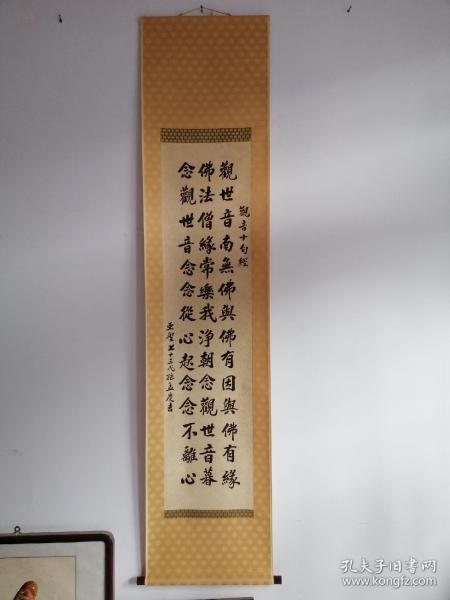 觀音十句經
觀世音南無佛與佛有因與佛有緣
佛法僧緣常樂我淨朝念觀世音暮
念觀世音念念從心起念念不離心
亞聖七十三代孫孟慶吉
孔夫子旧书网
www.kongfz.com